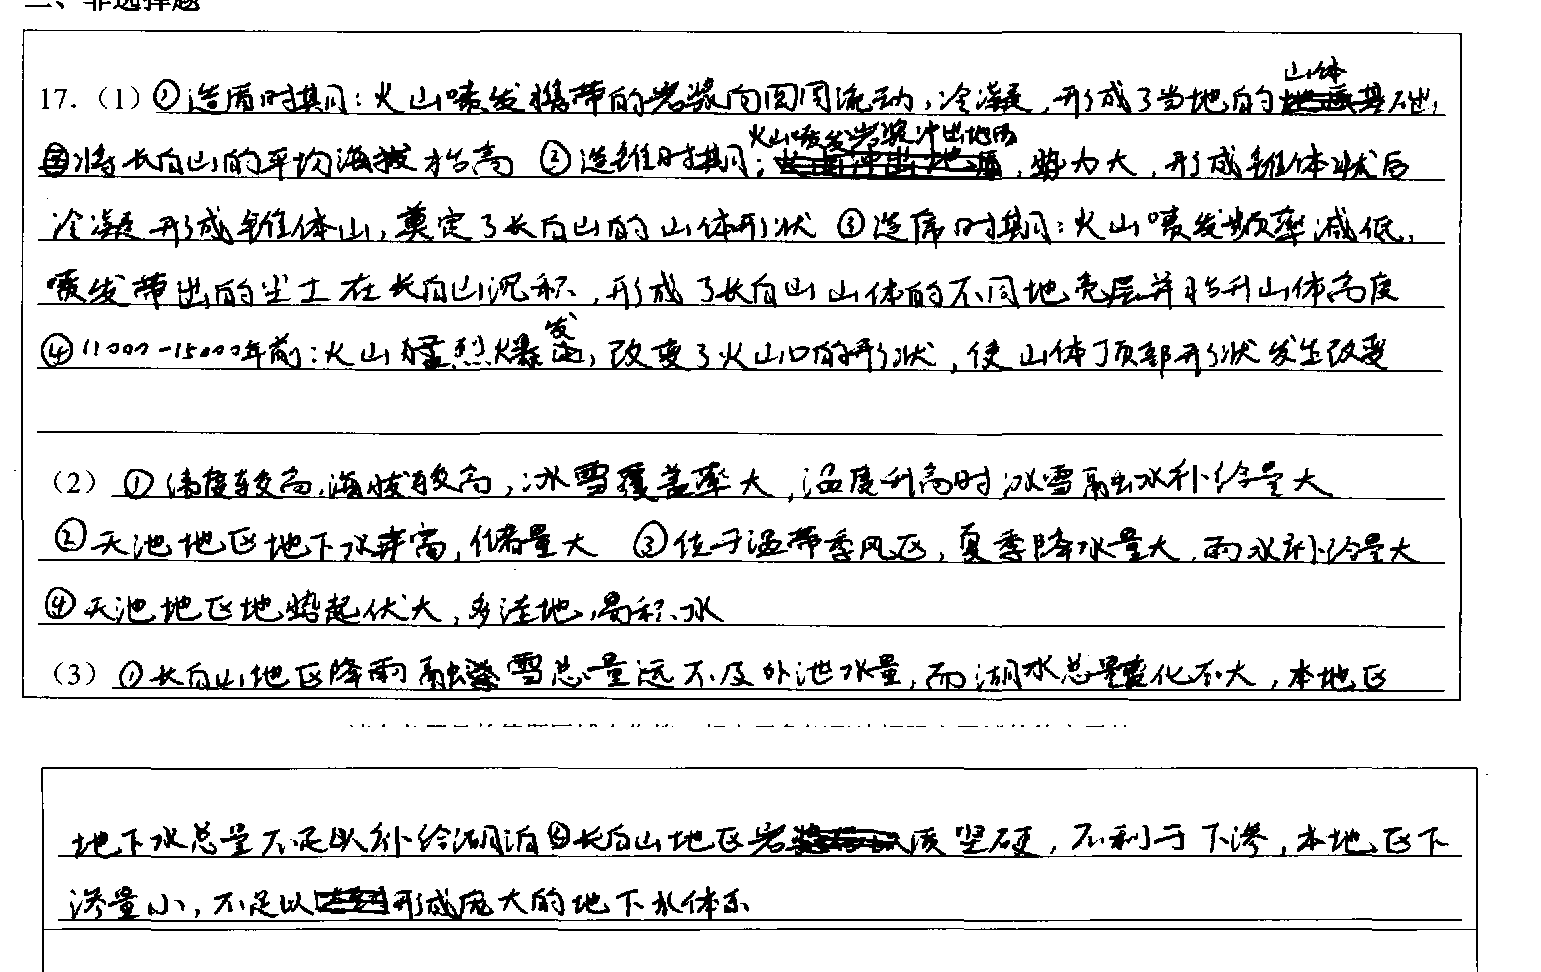 二、非选择题
17.（1）①造盾时期：火山喷发携带的岩浆向四周流动，冷凝，形成了当地的山体基础，
将长白山的平均海拔抬高 ②造锥时期：火山喷发岩浆冲出地面，势力大，形成锥体状后
冷凝形成锥体山，奠定了长白山的山体形状 ③造席时期：火山喷发频率减低，
喷发带出的尘土在长白山沉积，形成了长白山山体的不同地壳层并抬升山体高度
④11000-15000年前：火山猛烈爆发，改变了火山口的形状，使山体顶部形状发生改变
（2）①纬度较高，海拔较高，冰雪覆盖率大，温度升高时冰雪融水补给量大
②天池地区地下水丰富，储量大 ③位于温带季风区，夏季降水量大，雨水补给量大
④天池地区地势起伏大，多洼地，易积水
（3）①长白山地区降雨融雪总量远不及外池水量，而湖水总量变化不大，本地区
地下水总量不足以补给湖泊②长白山地区岩质坚硬，不利于下渗，本地区下
渗量小，不足以形成庞大的地下水体系